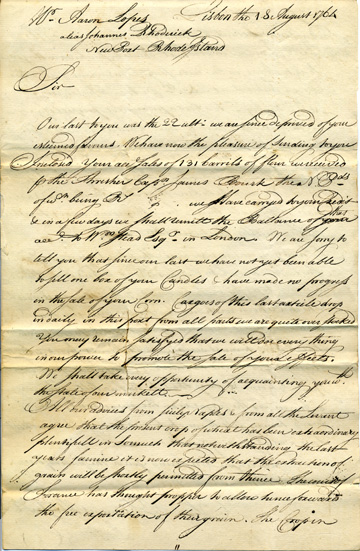 Mr. Aaron Lopes Lisbon the 18 August 1764
alias Johannes Rhoderick
New Port Rhode Island
Sir
Our last to you was the 22 ulto: we are since deprived of your
esteemed favours. We have now the pleasure of handing to you
Your acct Sales of 131 barrels of flour we received
the Thresher Capn James the
of we have carried to your
& in a few days we shall remitt the Ballance of
acct to Wm Stead Esqr. in London. We are sorry to
tell you that since our last we have not yet been able
to sell one box of your Candles & have made no progress
in the sale of your Corn. Cargoes of this last article drop
in daily, in this port from all parts we are quite over stocked
You may remain satisfied that we will doe every thing
in our power to promote the sale of your effects.
We shall take every opportunity of acquainting you with
the state of our markett.
All our advices from & from all the
agree that the present crop of has been extraordinary
plentifull in so much that notwithstanding the last
years famine it is now expected that the extraction of
grain will be shortly permitted from thence.
France has thought propper to allow henceforwards
the free exportation of their grain. The Crop in